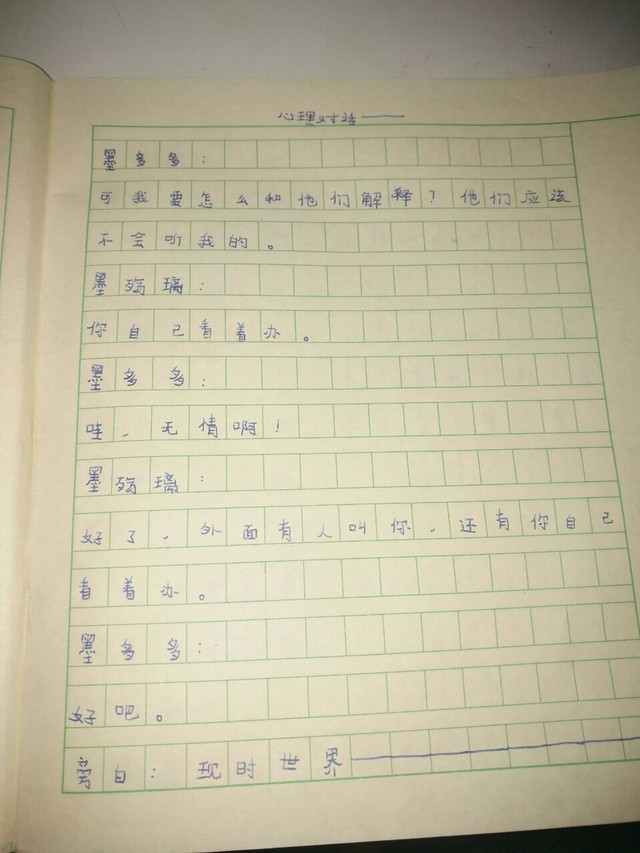 心理对话——
墨多多：
可我要怎么和他们解释？他们应该
不会听我的。
墨殇璃：
你自己看着办。
墨多多：
哇、无情啊！
墨殇璃：
好了、外面有人叫你、还有你自己
看着办。
墨多多：
好吧。
旁白：现时世界——